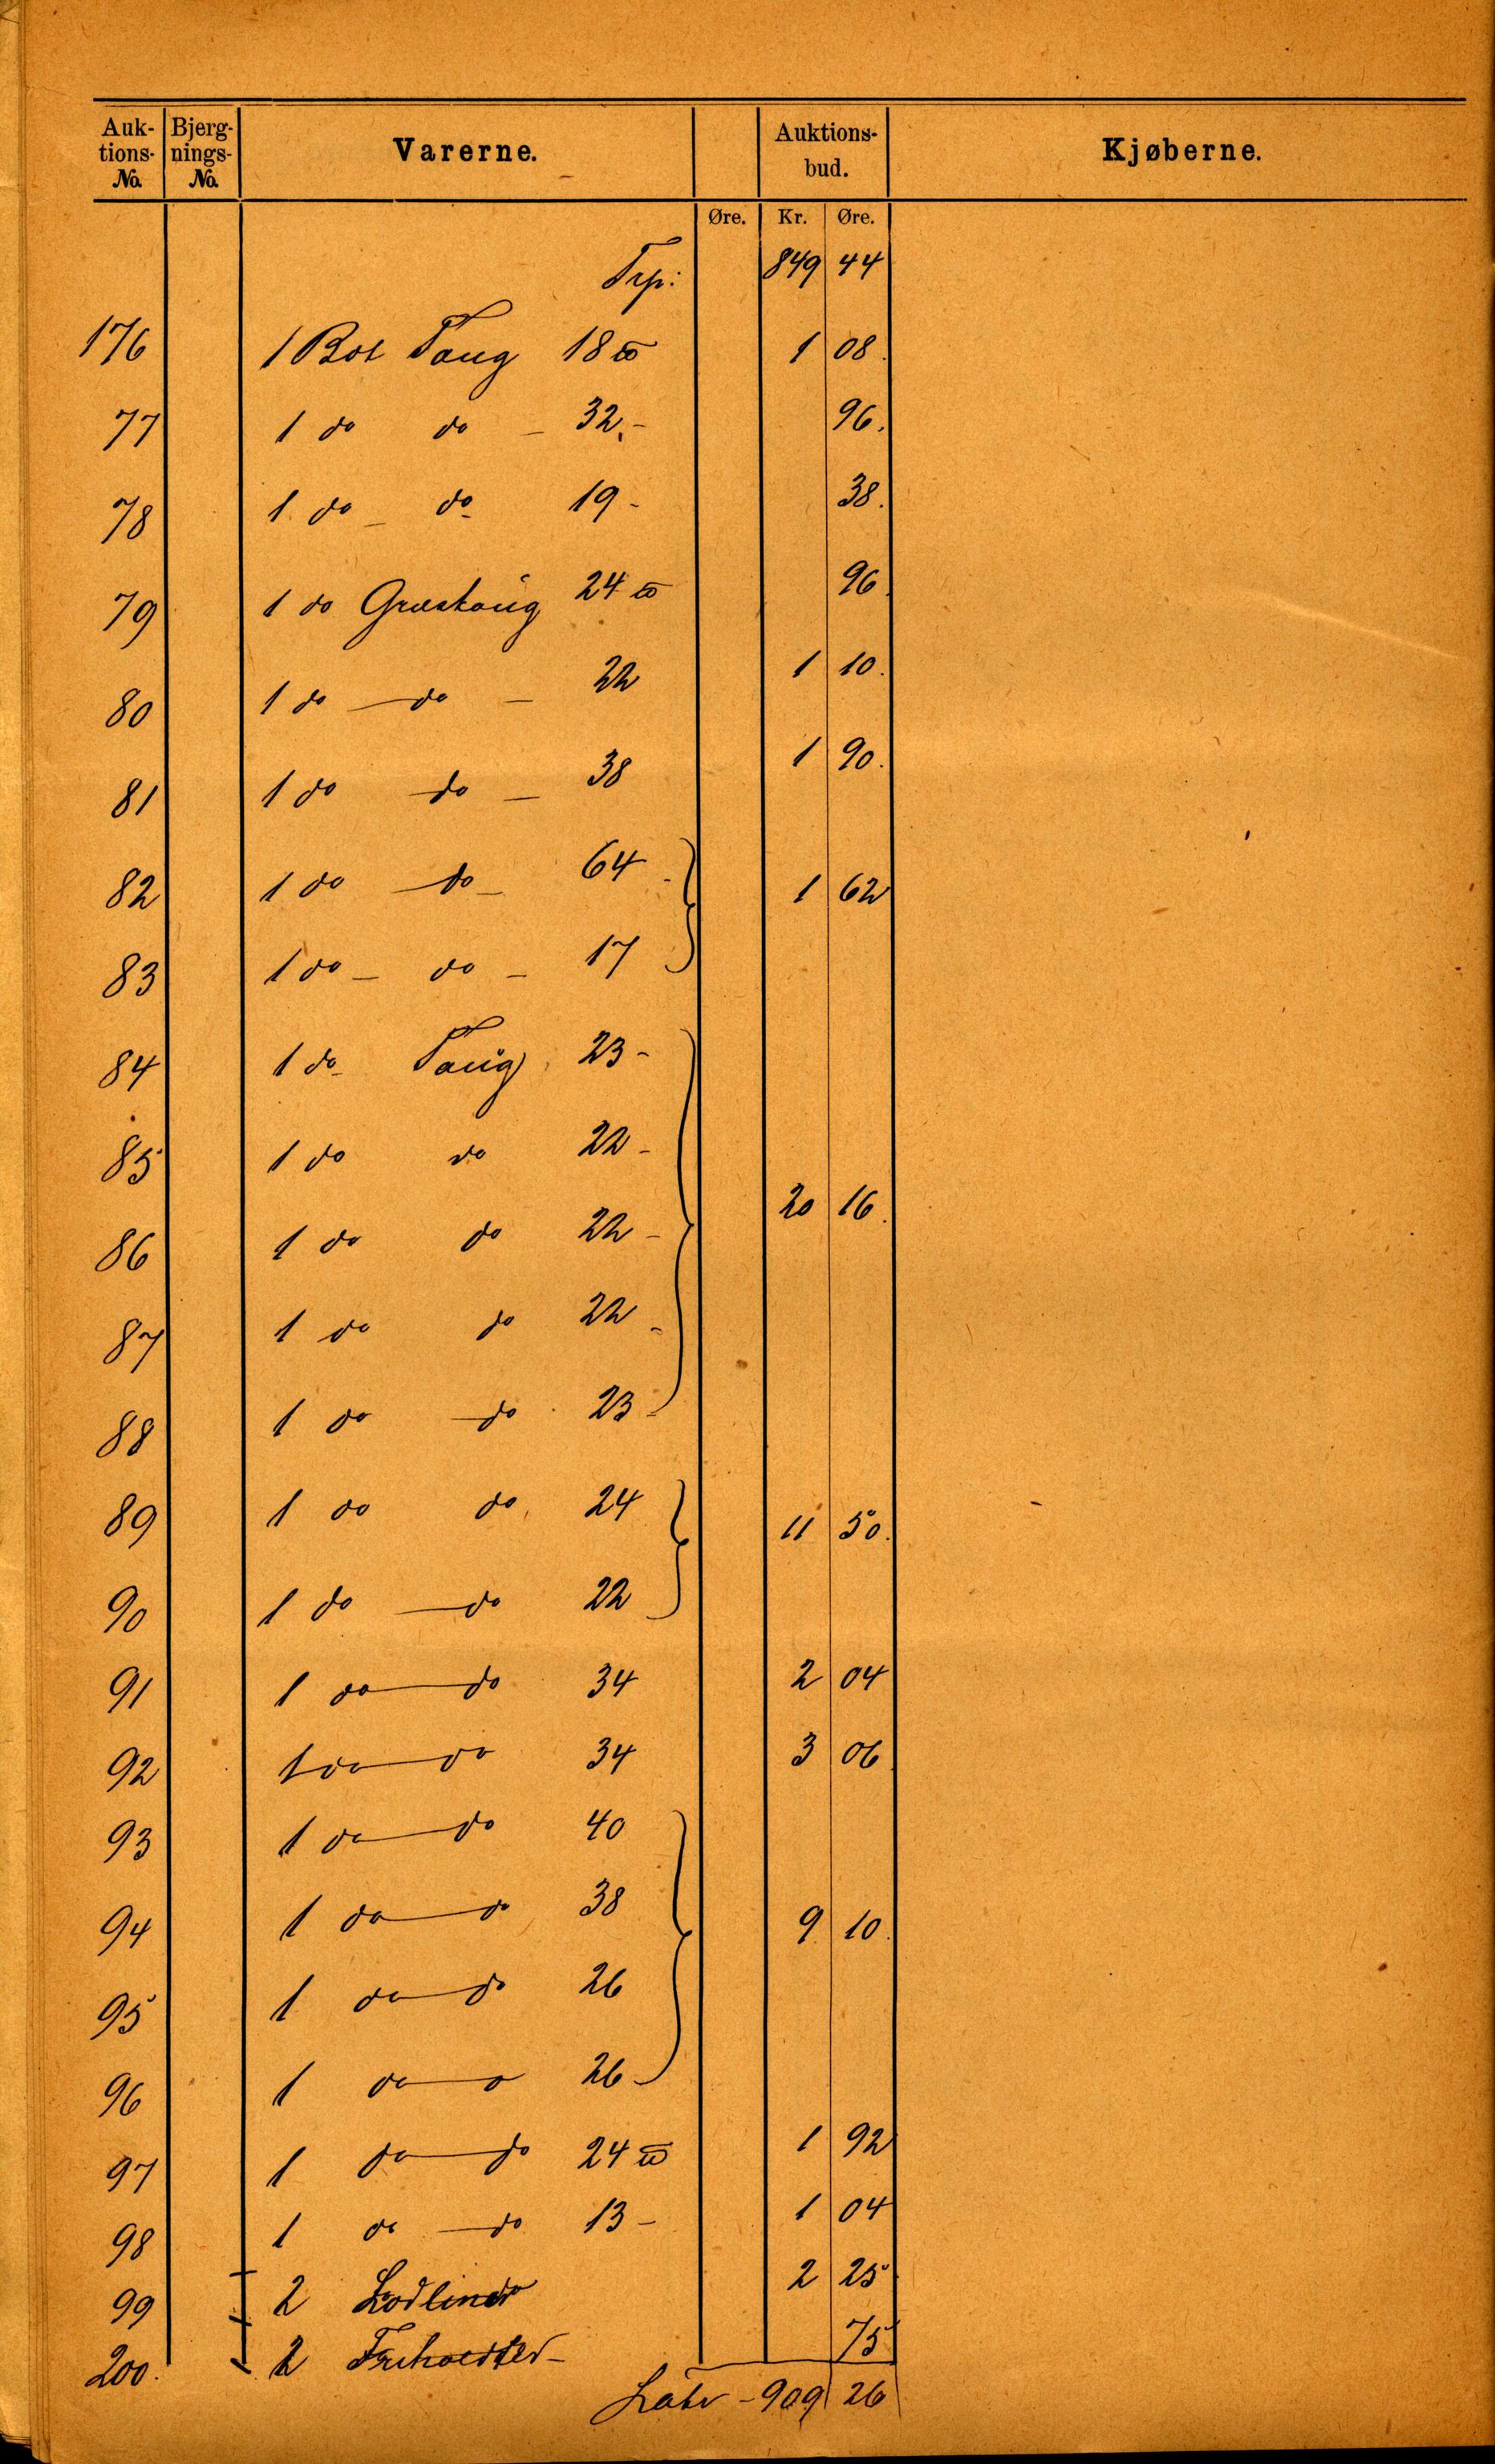 Auk- Bjerg- Varerne. Auktions- Kjøberne.
tions- nings- bud.
No. No.
Øre. Kr. Øre.
Trp: 849 44
176 1 Bot Toug 18 ℔ 1 08.
77 1 do do - 32.- 96.
78 1 do - do 19 - 38.
79 1 do Græstoug 24 ℔ 96
80 1 do - do - 22 1 10.
81 1 do do - 38 1 90.
82 1 do - do - 64 - 1 62
83 1 do - do - 17
84 1 do Toug 23 -
85 1 do do 22 -
86 1 do do 22 - 20 16.
87 1 do do 22 -
88 1 do - do 23 -
89 1 do do 24 11 50.
90 1 do - do 22
91 1 do - do 34 2 04
92 1 do - do 34 3 06
93 1 do - do 40
94 1 do - do 38 9 10.
95 1 do - do 26
96 1 do - o 26 -
97 1 do - do 24 ℔ 1 92
98 1 do - do 13 - 1 04
99 2 Lodliner 2 25
200. 2 75
Latr - 909 26